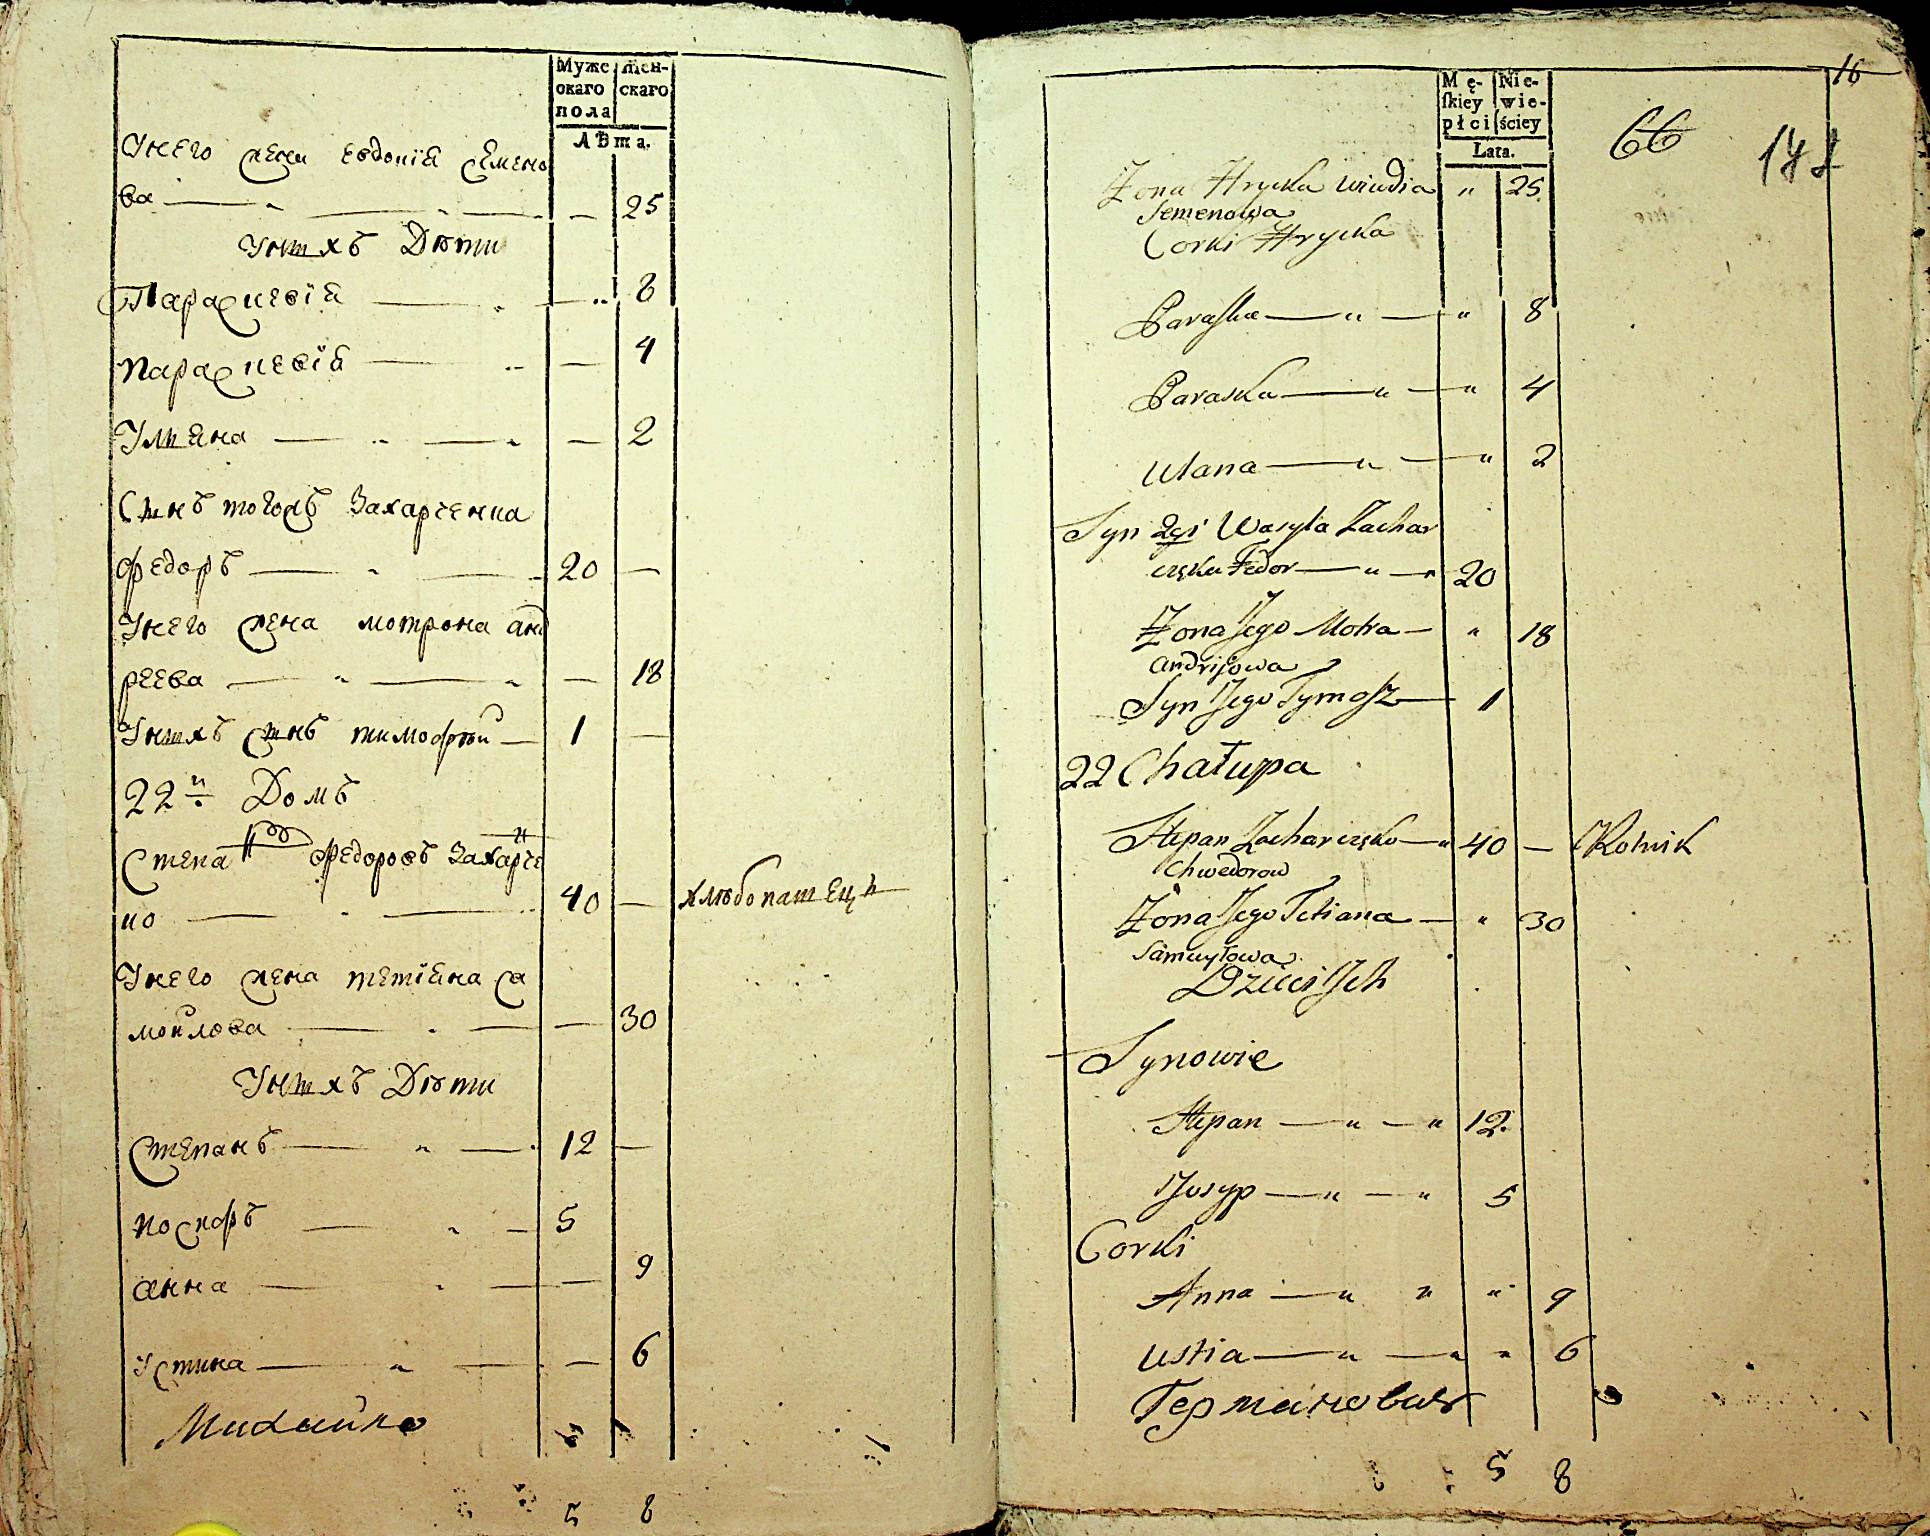 Муже
скаго
пола
жен-
скаго
Лѣта.
Унего жена евдокїѧ семено
ва — — — 25
Унихъ Дѣти
Параскевїѧ — — 8
параскевїѧ — — 4
Улиѧна — — — 2
Синъ тогожъ Захарченка
федоръ — — 20 —
Унего жена мотрона анд
реева — — — 18
Унихъ синъ тимофѣй — 1 —
22й Домъ
Степан федоровъ Захарче
ко — — 40 — хлѣбопашецъ
Унего жена тетїѧна са
мойлова — — — 30
Унихъ Дѣти
Степанъ — — 12 —
иосифъ — — 5
анна — — — 9
устина — — — 6
Михайло
5 8
16
66
Mę-
skiey
płci
Nie-
wie-
ściey
Lata.
Żona Hrycka Wiudia " 25
Semenowa
Corki Hrycka
Paraska — " — " 8
Paraska — " — " 4
Ulana — " — " 2
Syn 2gi Wasyla Zachar
częka Fedor — " — " 20
Żona Jego Motra — " 18
Andrijowa
Syn Jego Tymosz — 1
22 Chałupa
Stepan Zacharczęko — " 40 — Rolnik
Chwedorow
Żona Jego Tetiana — " 30
Samuyłowa
Dzieci Ich
Synowie
Stepan — " — " 12
Josyp — " — " 5
Corki
Anna — " " " 9
Ustia — " — " " 6
Германович
5 8